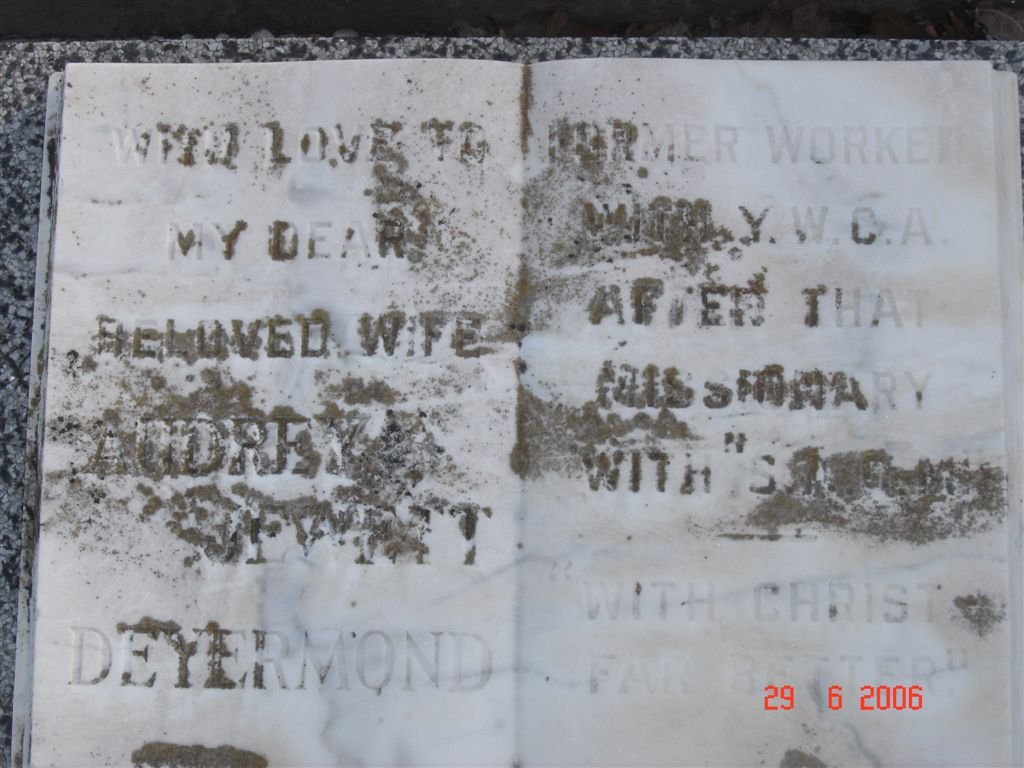 WITH LOVE TO
MY DEAR
BELOVED WIFE
AUDREY
JEWITT
DEYERMOND
FORMER WORKER
WITH Y.W.C.A.
AFTER THAT
MISSIONARY
WITH
"WITH CHRIST
FAR BETTER"
29 6 2006